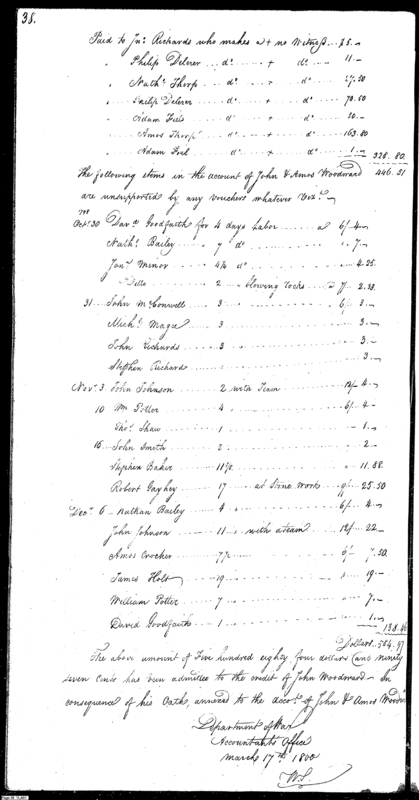 38.
Paid to Jn° Richards who makes a + no Witness .. 75.-
" Philip Delner .. d° .. + d° .. 11.-
" Nath¹ Thorp .. d° .. + d° .. 27.50
" Philip Delner .. d° .. + d° .. 70.50
" Adam .. d° .. + d° .. 20.-
" Amos Thorp .. d° .. + d° .. 163.80
" Adam .. d° .. + d° .. 1.- 328.80.
The following items in the account of John & Amos Woodward 446.51
are unsupported by any vouchers whatever Viz¹
Oct¹ 30 Dav⁠d Goodfaith for 4 days labor .. a 6/ 4.-
Nath¹ Bailey .. 7 d° .. " 7.-
Jam⁠s Minor .. 4¼ d° .. 4.25.
Ditto .. 2 " blowing rocks .. a 7/ 2.33.
31 .. John McConnell .. 3 .. 6/ 3.-
Mich¹ Magee .. 3 .. 3.-
John Richards .. 3 .. 3.-
Stephen Richards .. 3.-
Nov¹ 3 John Johnson .. 2 with Team .. 12/ 4.-
10 Wm Potter .. 4 .. 6/ 4.-
Tho⁠s Shaw .. 1 .. 1.-
15 .. John Smith .. 2 .. 2.-
Stephen Baker .. 11 .. 11.88.
Robert Gayhey .. 17 .. at Stone Work .. 9/ 25.50
Dec¹ 6 Nathan Bailey .. 4 .. 6/ 4.-
John Johnson .. 11 .. with a team .. 12/ 22.-
Amos Crocker .. 7½ .. 6/ 7.50.
James Holt .. 19 .. 19.-
William Potter .. 7 .. 7.-
David Goodfaith .. 1 .. 1.- 138.46
Dollars .. 584.97
The above amount of Five hundred eighty four dollars and ninety
seven Cents has been admitted to the credit of John Woodward - In
consequence of his Oath, annexed to the acco¹ of John & Amos Woodward
Department of War
Accountants Office
March 17th 1800
W.S.